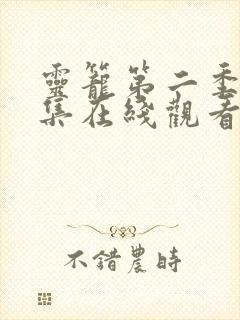 靈籠第二季
集在綫觀看
不錯農時